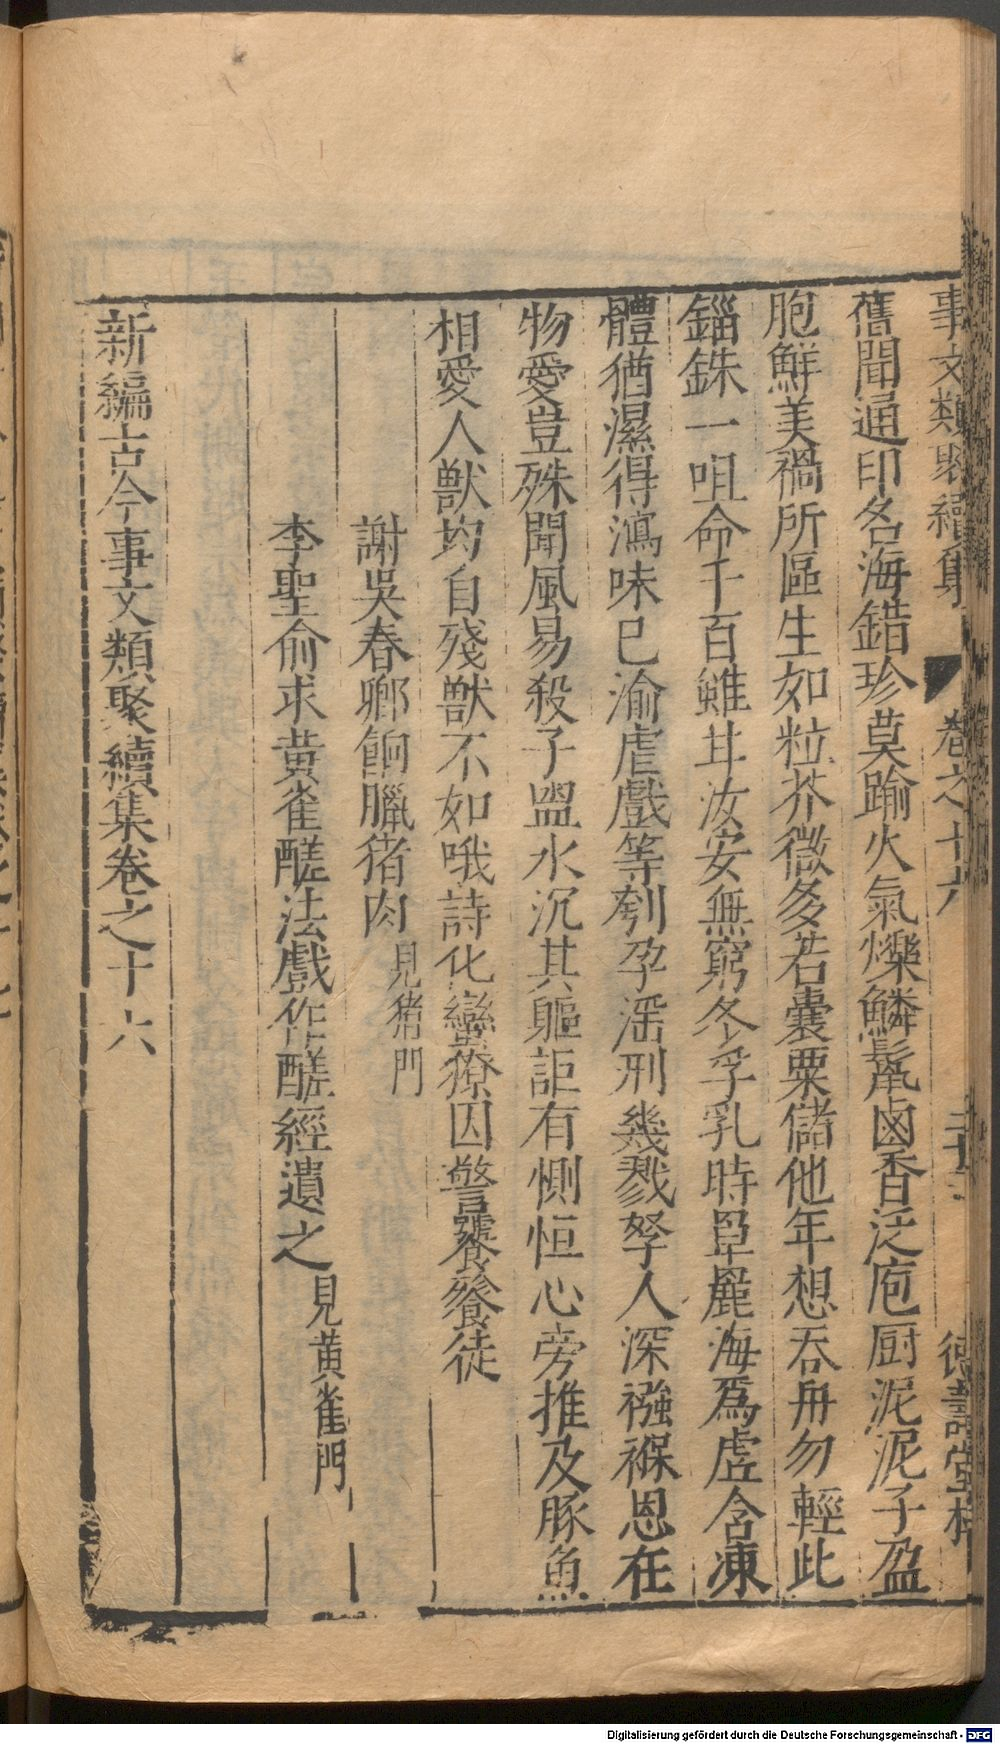 事文類聚續集 卷之十六 德壽堂梓
舊聞通印名海錯珍莫踰火氣爍鱗鬣鹵香泛庖厨泥泥子盈
胞鮮美禍所區生如粒芥微多若囊粟儲他年想吞舟勿輕此
錙銖一咀命千百雖甘汝安無窮冬孚乳時罩麗海爲虛含凍
體猶濕得鴻味已渝虐戲等刳孕淫刑幾戮孥人深襁褓恩在
物愛豈殊聞風易殺子盥水沉其軀詎有惻恒心旁推及豚魚
相愛人獸均自殘獸不如哦詩化蠻獠因警饕餮徒
謝吳春卿餉臘猪肉 見猪門
李聖俞求黃雀鹺法戲作鹺經遺之 見黃雀門
新編古今事文類聚續集卷之十六
Digitalisierung gefördert durch die Deutsche Forschungsgemeinschaft - DFG